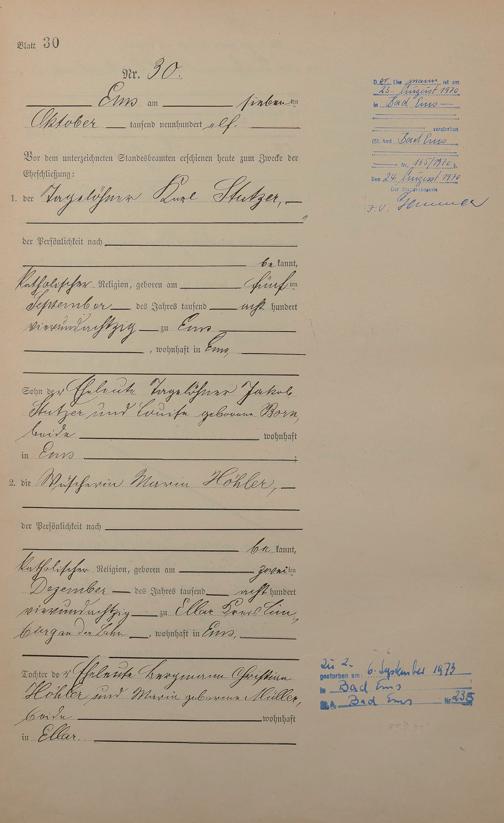 Blatt 30
Nr. 30.
Ems am sieben ten
Oktober tausend neunhundert elf.
Vor dem unterzeichneten Standesbeamten erschienen heute zum Zwecke der
Eheschließung:
1. der Tagelöhner Karl Stutzer,
der Persönlichkeit nach
be kannt,
katholischer Religion, geboren am fünf ten
September des Jahres tausend acht hundert
vierundachtzig zu Ems
, wohnhaft in Ems
Sohn der Eheleute Tagelöhner Jakob
Stutzer und Louise geborene Born,
beide wohnhaft
in Ems ;
2. die Wäscherin Maria Höhler,
der Persönlichkeit nach
be kannt,
katholischer Religion, geboren am zwei ten
Dezember des Jahres tausend acht hundert
vierundachtzig zu Ellar Kreis Lim,
burg an der Lahn , wohnhaft in Ems,
Tochter der Eheleute Bergmann Christian
Höhler und Maria geborene Müller,
beide wohnhaft
in Ellar.
D er Ehe mann ist am
23. August 1970
in Bad Ems
verstorben
Bad Ems
Nr. 155/1970
Den 24. August 1970
Der Standesbeamte
Zu 2.
gestorben am: 6. September 1973
in Bad Ems
St. A. Bad Ems Nr. 235